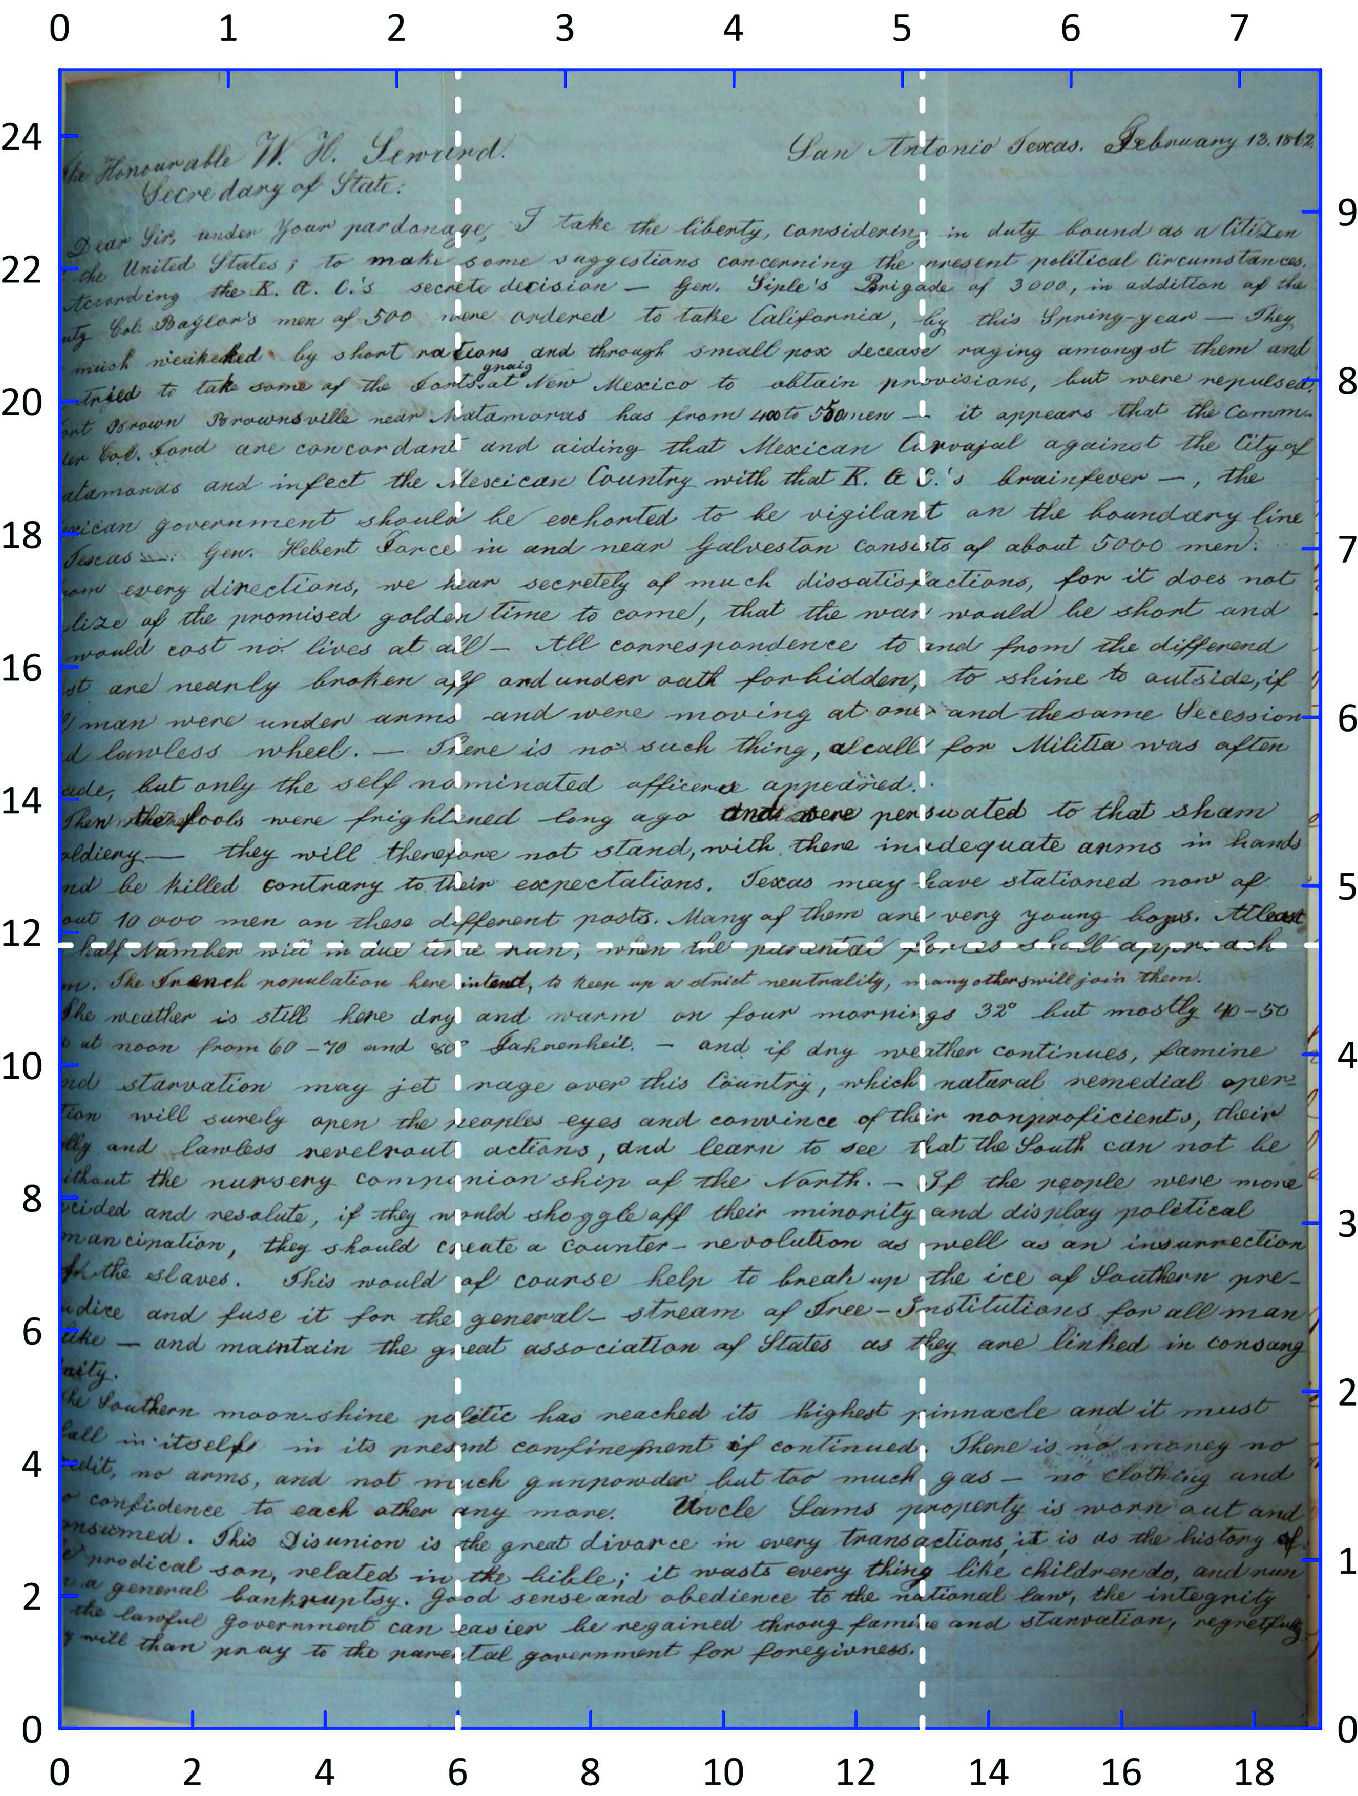 0 1 2 3 4 5 6 7
The Honourable W. H. Seward. San Antonio Texas. February 13. 1862.
Secredary of State:
Dear Sir, under Your pardonage, I take the liberty, considering in duty bound as a Citizen
the United States; to make some suggestions concerning the present political Circumstances.
According the K. G. C.'s secrete decision — Gen. Siple's Brigade of 3000, in addition of the
Col. Baylor's men of 500 were ordered to take California, by this Spring-year — They
much weakened by short rations and through small pox decease raging amongst them and
tried to take some of the Forts at New Mexico to obtain provisions, but were repulsed.
ort Brown Brownsville near Matamoras has from 400 to 500 men — it appears that the Comm-
der Col. Ford are concordant and aiding that Mexican Carvajal against the City of
atamoras and infect the Mexican Country with that K. G. C.'s brainfever —, the
exican government should be exhorted to be vigilant on the boundary line
Texas — Gen. Hebert Force in and near Galveston consists of about 5000 men.
rom every directions, we hear secretely of much dissatisfactions, for it does not
lize of the promised golden time to come, that the war would be short and
would cost no lives at all — All correspondence to and from the differend
st are nearly broken off and under oath forbidden, to shine to outside, if
man were under arms and were moving at one and the same Secession
d lawless wheel. — There is no such thing, a call for Militia was often
ade, but only the self nominated officers appeared.
Then the fools were frightened long ago and were persuated to that sham
oldiery — they will therefore not stand, with there inadequate arms in hands
nd be killed contrary to their expectations. Texas may have stationed now of
out 10 000 men on these different posts. Many of them are very young boys. Atleast
half Number will in due time run, when the parental forces shall approach
m. The French population here intend, to keep up a strict neutrality, many others will join them.
The weather is still here dry and warm on four mornings 32° but mostly 40-50
at noon from 60-70 and 80° Fahrenheit. — and if dry weather continues, famine
nd starvation may jet rage over this Country, which natural remedial oper=
tion will surely open the peoples eyes and convince of their nonproficients, their
lly and lawless revelrout actions, and learn to see that the South can not be
ithout the nursery companion ship of the North. — If the people were more
ecided and resolute, if they would shoggle off their minority and display political
mancipation, they should create a counter-revolution as well as an insurrection
of the slaves. This would of course help to break up the ice of Southern pre-
udice and fuse it for the general- stream of Free-Institutions for all man
like — and maintain the great association of States as they are linked in consang
inity.
The Southern moon-shine politic has reached its highest pinnacle and it must
fall in itself in its present confinement if continued. There is no money no
redit, no arms, and not much gunpowder but too much gas — no clothing and
o confidence to each other any more. Uncle Sams property is worn out and
onsumed. This Disunion is the great divorce in every transactions, it is as the history of
prodical son, related in the bible; it wasts every thing like children do, and run
a general bankruptsy. Good sense and obedience to the national law, the integrity
the lawful Government can easier be regained throug famine and starvation, regretfully
y will than pray to the parental government for foregivness.
0 2 4 6 8 10 12 14 16 18
24 22 20 18 16 14 12 10 8 6 4 2 0
9 8 7 6 5 4 3 2 1 0